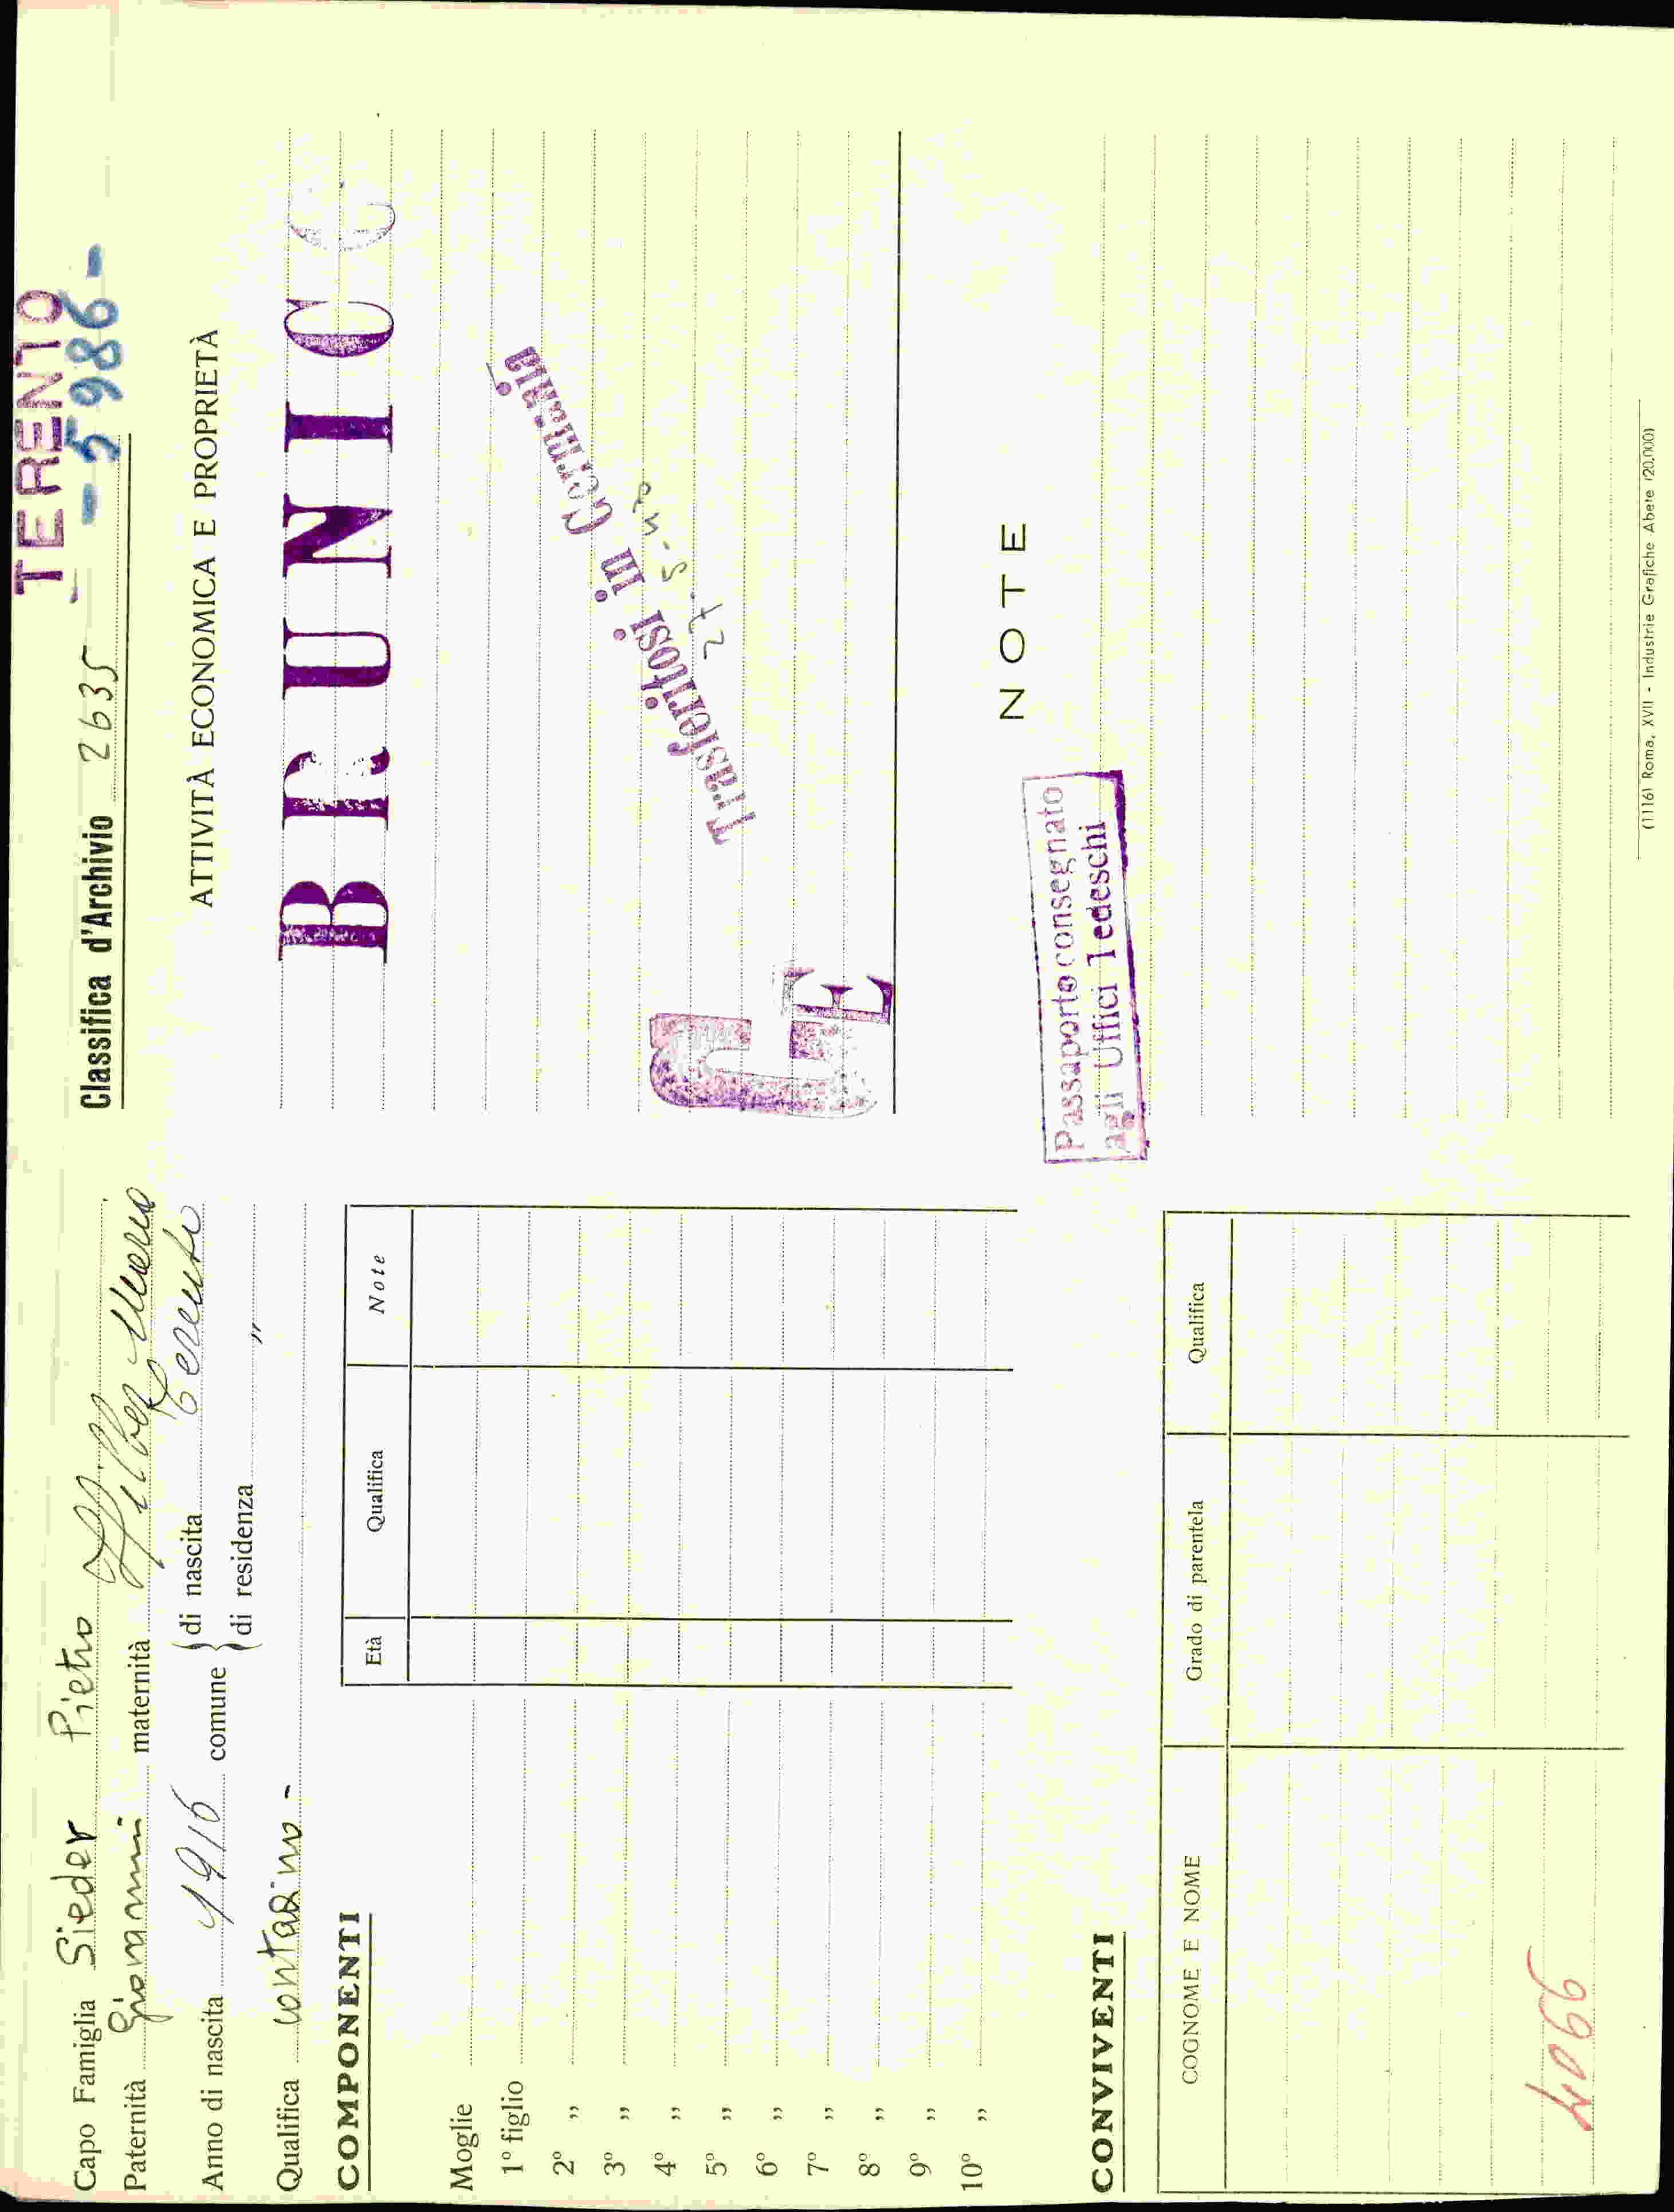 Capo Famiglia Sieder Pietro
Paternità Giovanni maternità
Anno di nascita 1916 comune di nascita Terento
di residenza „
Qualifica contadino -
COMPONENTI
Età Qualifica Note
Moglie
1º figlio
2º „
3º „
4º „
5º „
6º „
7º „
8º „
9º „
10º „
CONVIVENTI
COGNOME E NOME Grado di parentela Qualifica
4066
TERENTO
Classifica d'Archivio 2635 - 5986 -
ATTIVITÀ ECONOMICA E PROPRIETÀ
BRUNICO
Trasferitosi in Germania
27-5-40
E
NOTE
Passaporto consegnato
agli Uffici Tedeschi
(1116) Roma, XVII - Industrie Grafiche Abete (20.000)